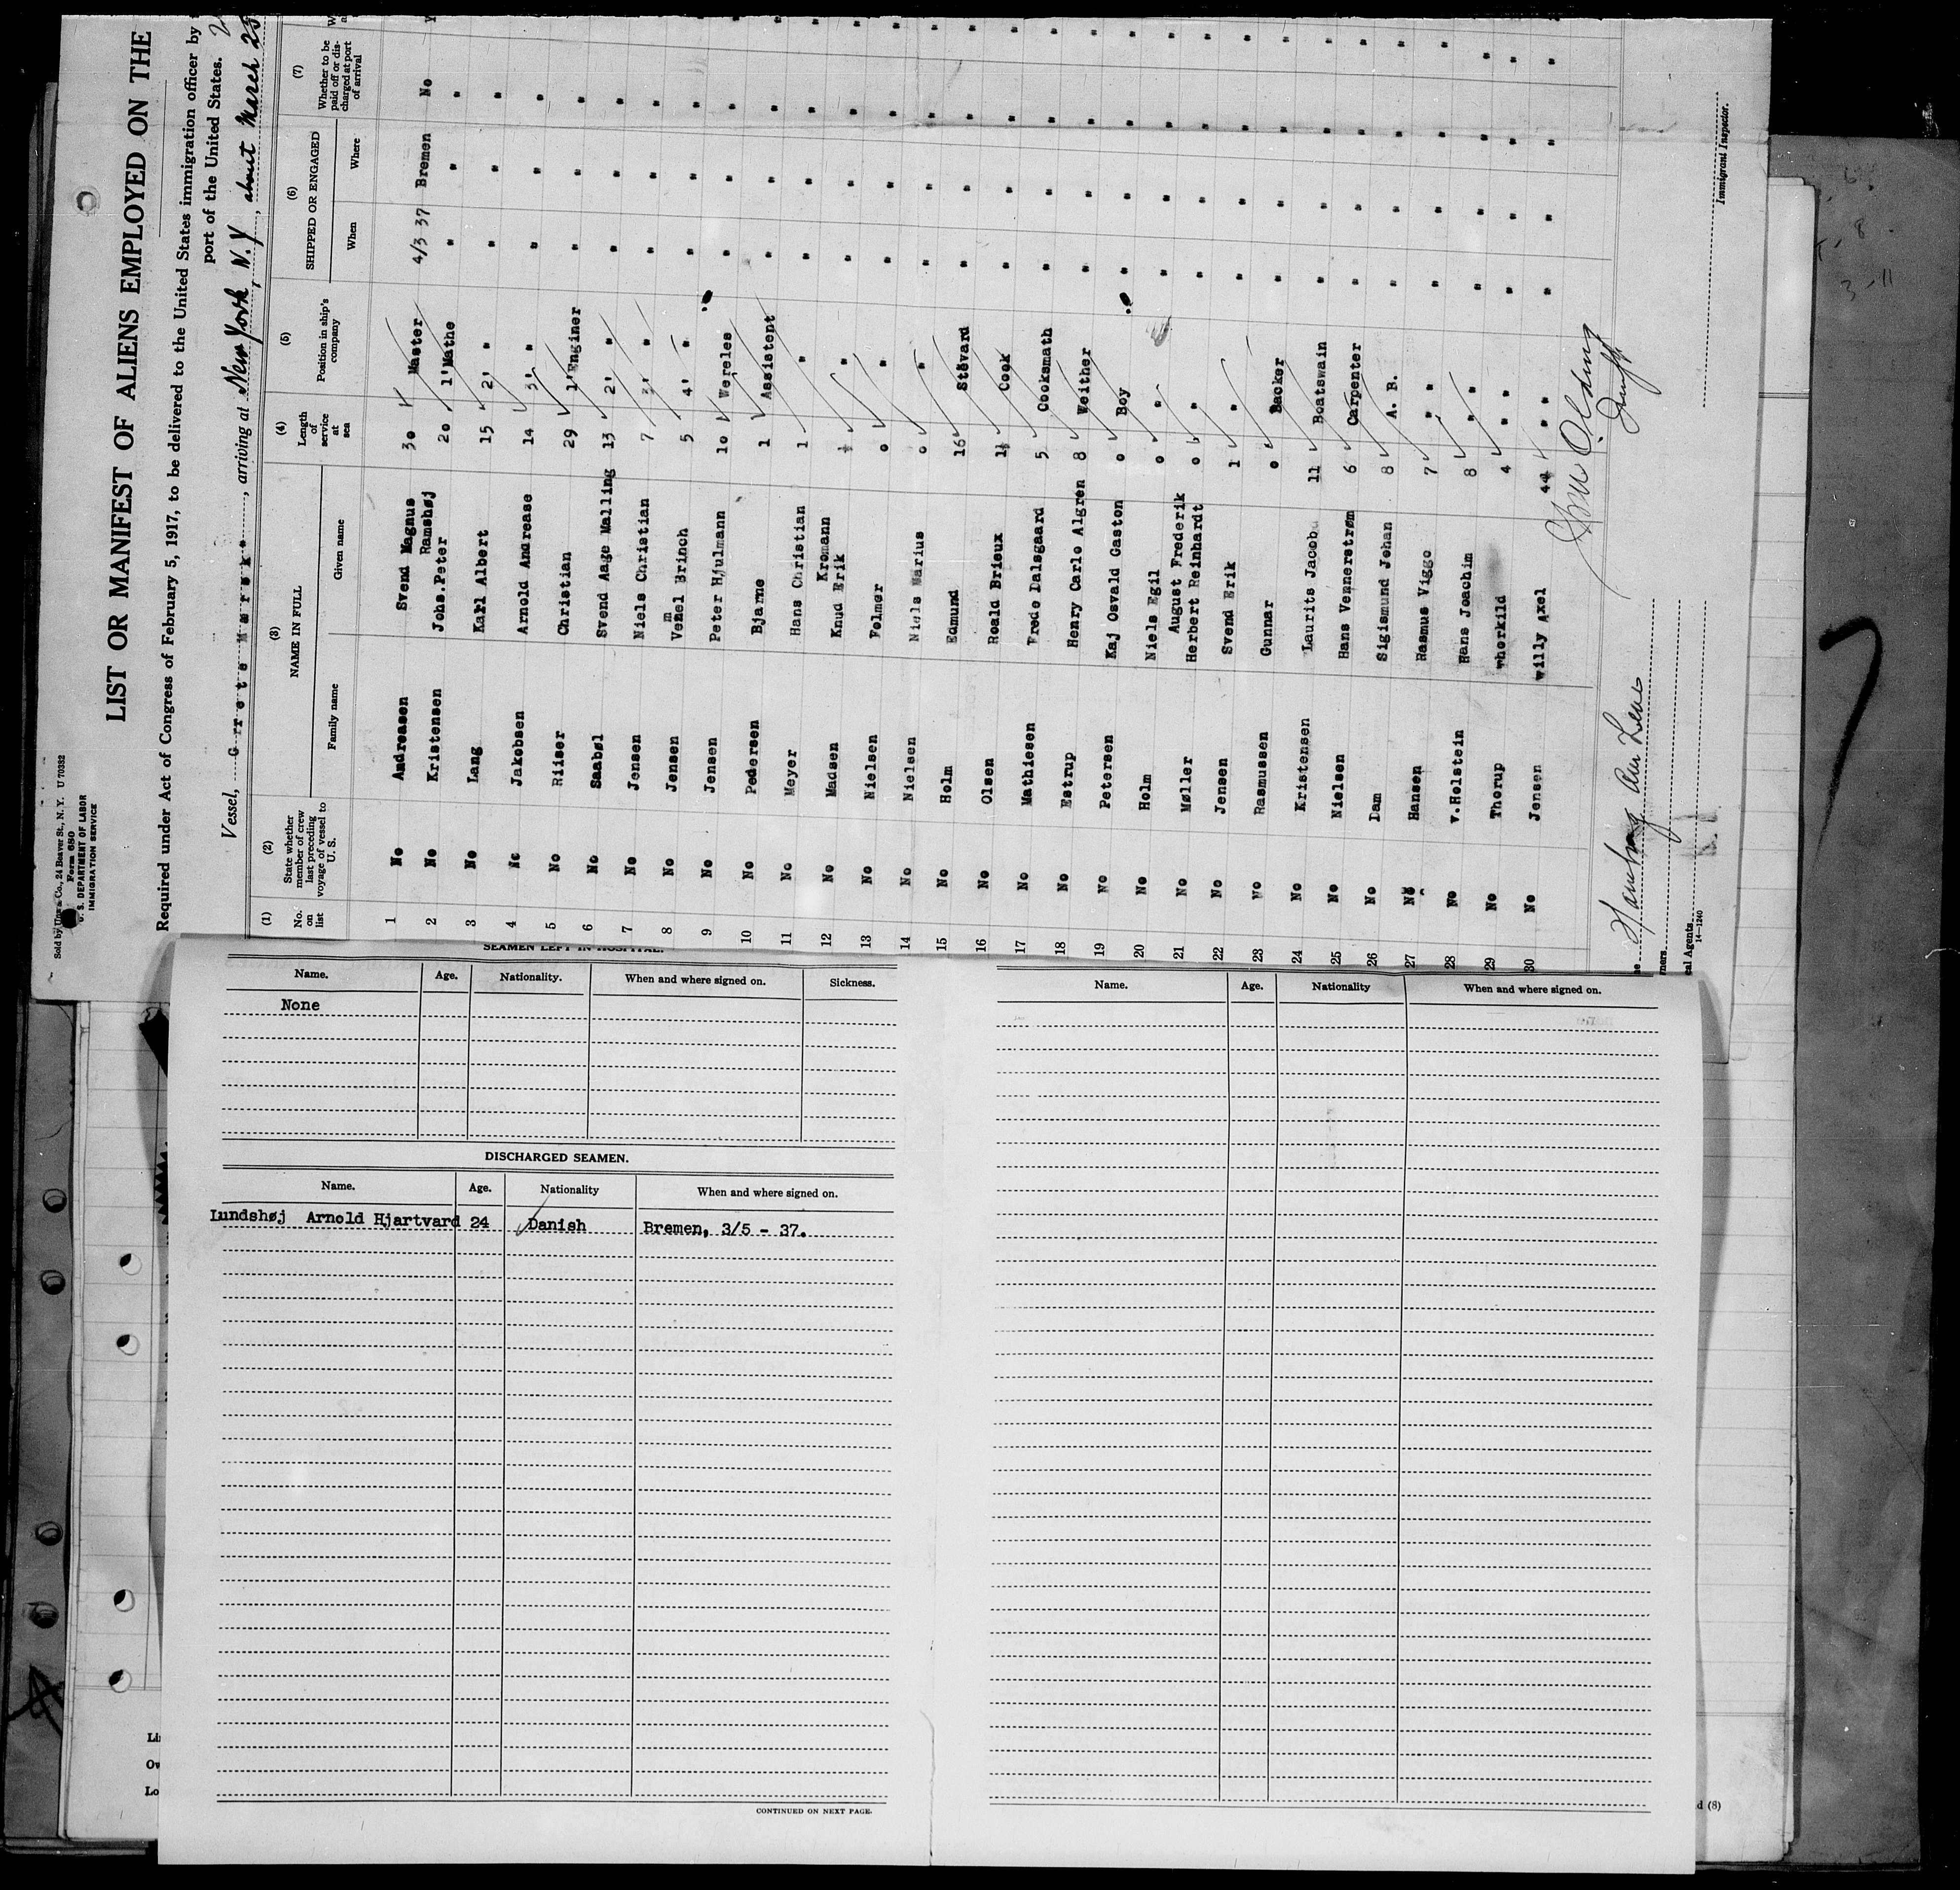 Sold by Unz & Co., 24 Beaver St., N.Y. U 70332
Form 680
U. S. DEPARTMENT OF LABOR
IMMIGRATION SERVICE
LIST OR MANIFEST OF ALIENS EMPLOYED ON THE
Required under Act of Congress of February 5, 1917, to be delivered to the United States immigration officer by
port of the United States.
Vessel, Grrete Mærsk, arriving at New York N.Y, about March 25
(1) No. on list (2) State whether member of crew last preceding voyage of vessel to U. S. (3) NAME IN FULL Family name Given name (4) Length of service at sea (5) Position in ship's company (6) SHIPPED OR ENGAGED When Where (7) Whether to be paid off or discharged at port of arrival
1 No Andreasen Svend Magnus 30 Master 4/3 37 Bremen No
2 No Kristensen Johs.Peter Ramshøj 20 1'Mathe " " "
3 No Lang Karl Albert 15 2' " " " "
4 No Jakobsen Arnold Andrease 14 3' " " " "
5 No Riiser Christian 29 1'Enginer " " "
6 No Saabøl Svend Aage Malling 13 2' " " " "
7 No Jensen Niels Christian 7 3' " " " "
8 No Jensen Vemel Brinch 5 4' " " " "
9 No Jensen Peter Hjulmann 10 Wereles " " "
10 No Pedersen Bjarne 1 Assistent " " "
11 No Meyer Hans Christian 1 " " " "
12 No Madsen Knud Erik Kromann ½ " " " "
13 No Nielsen Folmer 0 " " " "
14 No Nielsen Niels Marius 0 " " " "
15 No Holm Edmund 16 Støvard " " "
16 No Olsen Roald Brieux 1½ Cook " " "
17 No Mathiesen Frede Dalsgaard 5 Cooksmath " " "
18 No Estrup Henry Carlo Algren 8 Weither " " "
19 No Petersen Kaj Osvald Gaston 0 Boy " " "
20 No Holm Niels Egil 0 " " " "
21 No Møller August Frederik Herbert Reinhardt 0 " " " "
22 No Jensen Svend Erik 1 " " " "
23 No Rasmussen Gunnar 0 Backer " " "
24 No Kristensen Laurits Jacob 11 Boatswain " " "
25 No Nielsen Hans Vennerstrøm 6 Carpenter " " "
26 No Dam Sigismund Johan 8 A. B. " " "
27 No Hansen Rasmus Viggo 7 " " " " "
28 No v.Holstein Hans Joachim 8 " " " " "
29 No Thorup Therkild 4 " " " " "
30 No Jensen Willy Axel 44 " " " " "
Immigrant Inspector.
14—1240
SEAMEN LEFT IN HOSPITAL.
Name. Age. Nationality. When and where signed on. Sickness.
None
DISCHARGED SEAMEN.
Name. Age. Nationality When and where signed on.
Lundshøj Arnold Hjartvard 24 Danish Bremen, 3/5 - 37.
CONTINUED ON NEXT PAGE.
Name. Age. Nationality When and where signed on.
Li
Ow
Lo
d (8)